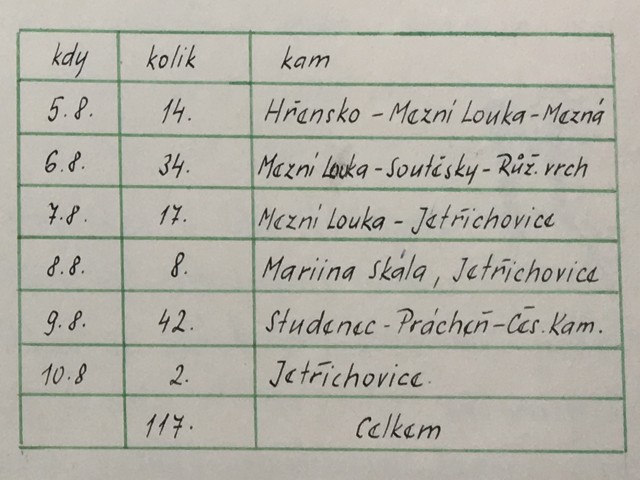 kdy kolik kam
5.8. 14. Hřensko - Mezní Louka - Mezná
6.8. 34. Mezní Louka - Soutěsky - Růž. vrch
7.8. 17. Mezní Louka - Jetřichovice
8.8. 8. Mariina Skála, Jetřichovice
9.8. 42. Studenec - Prácheň - Čes. Kam.
10.8 2. Jetřichovice.
117. Celkem